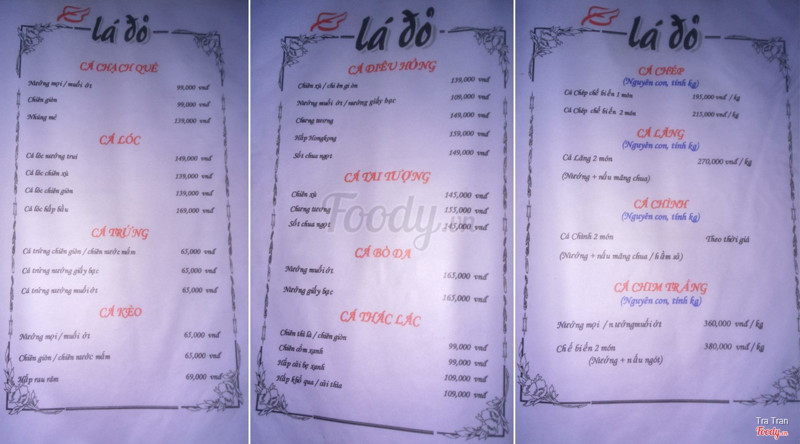 lá đỏ
CÁ CHẠCH QUẾ
Nướng mọi / muối ớt 99,000 vnđ
Chiên giòn 99,000 vnđ
Nhúng mẻ 139,000 vnđ
CÁ LÓC
Cá lóc nướng trui 149,000 vnđ
Cá lóc chiên xù 139,000 vnđ
Cá lóc chiên giòn 139,000 vnđ
Cá lóc hấp bầu 169,000 vnđ
CÁ TRỨNG
Cá trứng chiên giòn / chiên nước mắm 65,000 vnđ
Cá trứng nướng giấy bạc 65,000 vnđ
Cá trứng nướng muối ớt 65,000 vnđ
CÁ KÈO
Nướng mọi / muối ớt 65,000 vnđ
Chiên giòn / chiên nước mắm 65,000 vnđ
Hấp rau răm 69,000 vnđ
lá đỏ
CÁ DIÊU HỒNG
Chiên xù / chiên giòn 139,000 vnđ
Nướng muối ớt / nướng giấy bạc 109,000 vnđ
Chưng tương 149,000 vnđ
Hấp Hongkong 139,000 vnđ
Sốt chua ngọt 149,000 vnđ
CÁ TAI TƯỢNG
Chiên xù 145,000 vnđ
Chưng tương 155,000 vnđ
Sốt chua ngọt 145,000 vnđ
CÁ BÒ DA
Nướng muối ớt 165,000 vnđ
Nướng giấy bạc 165,000 vnđ
CÁ THÁC LÁC
Chiên thì là / chiên giòn
Chiên cốm xanh 99,000 vnđ
Hấp cải bẹ xanh 99,000 vnđ
Hấp khổ qua / cải thìa 109,000 vnđ
109,000 vnđ
lá đỏ
CÁ CHÉP
(Nguyên con, tính kg)
Cá Chép chế biến 1 món 195,000 vnđ / kg
Cá Chép chế biến 2 món 215,000 vnđ / kg
CÁ LĂNG
(Nguyên con, tính kg)
Cá Lăng 2 món 270,000 vnđ / kg
(Nướng + nấu măng chua)
CÁ CHÌNH
(Nguyên con, tính kg)
Cá Chình 2 món Theo thời giá
(Nướng + nấu măng chua / hầm sả)
CÁ CHIM TRẮNG
(Nguyên con, tính kg)
Nướng mọi / nướng muối ớt 360,000 vnđ / kg
Chế biến 2 món 380,000 vnđ / kg
(Nướng + nấu ngót)
Foody.vn
Tra Tran
Foody.vn